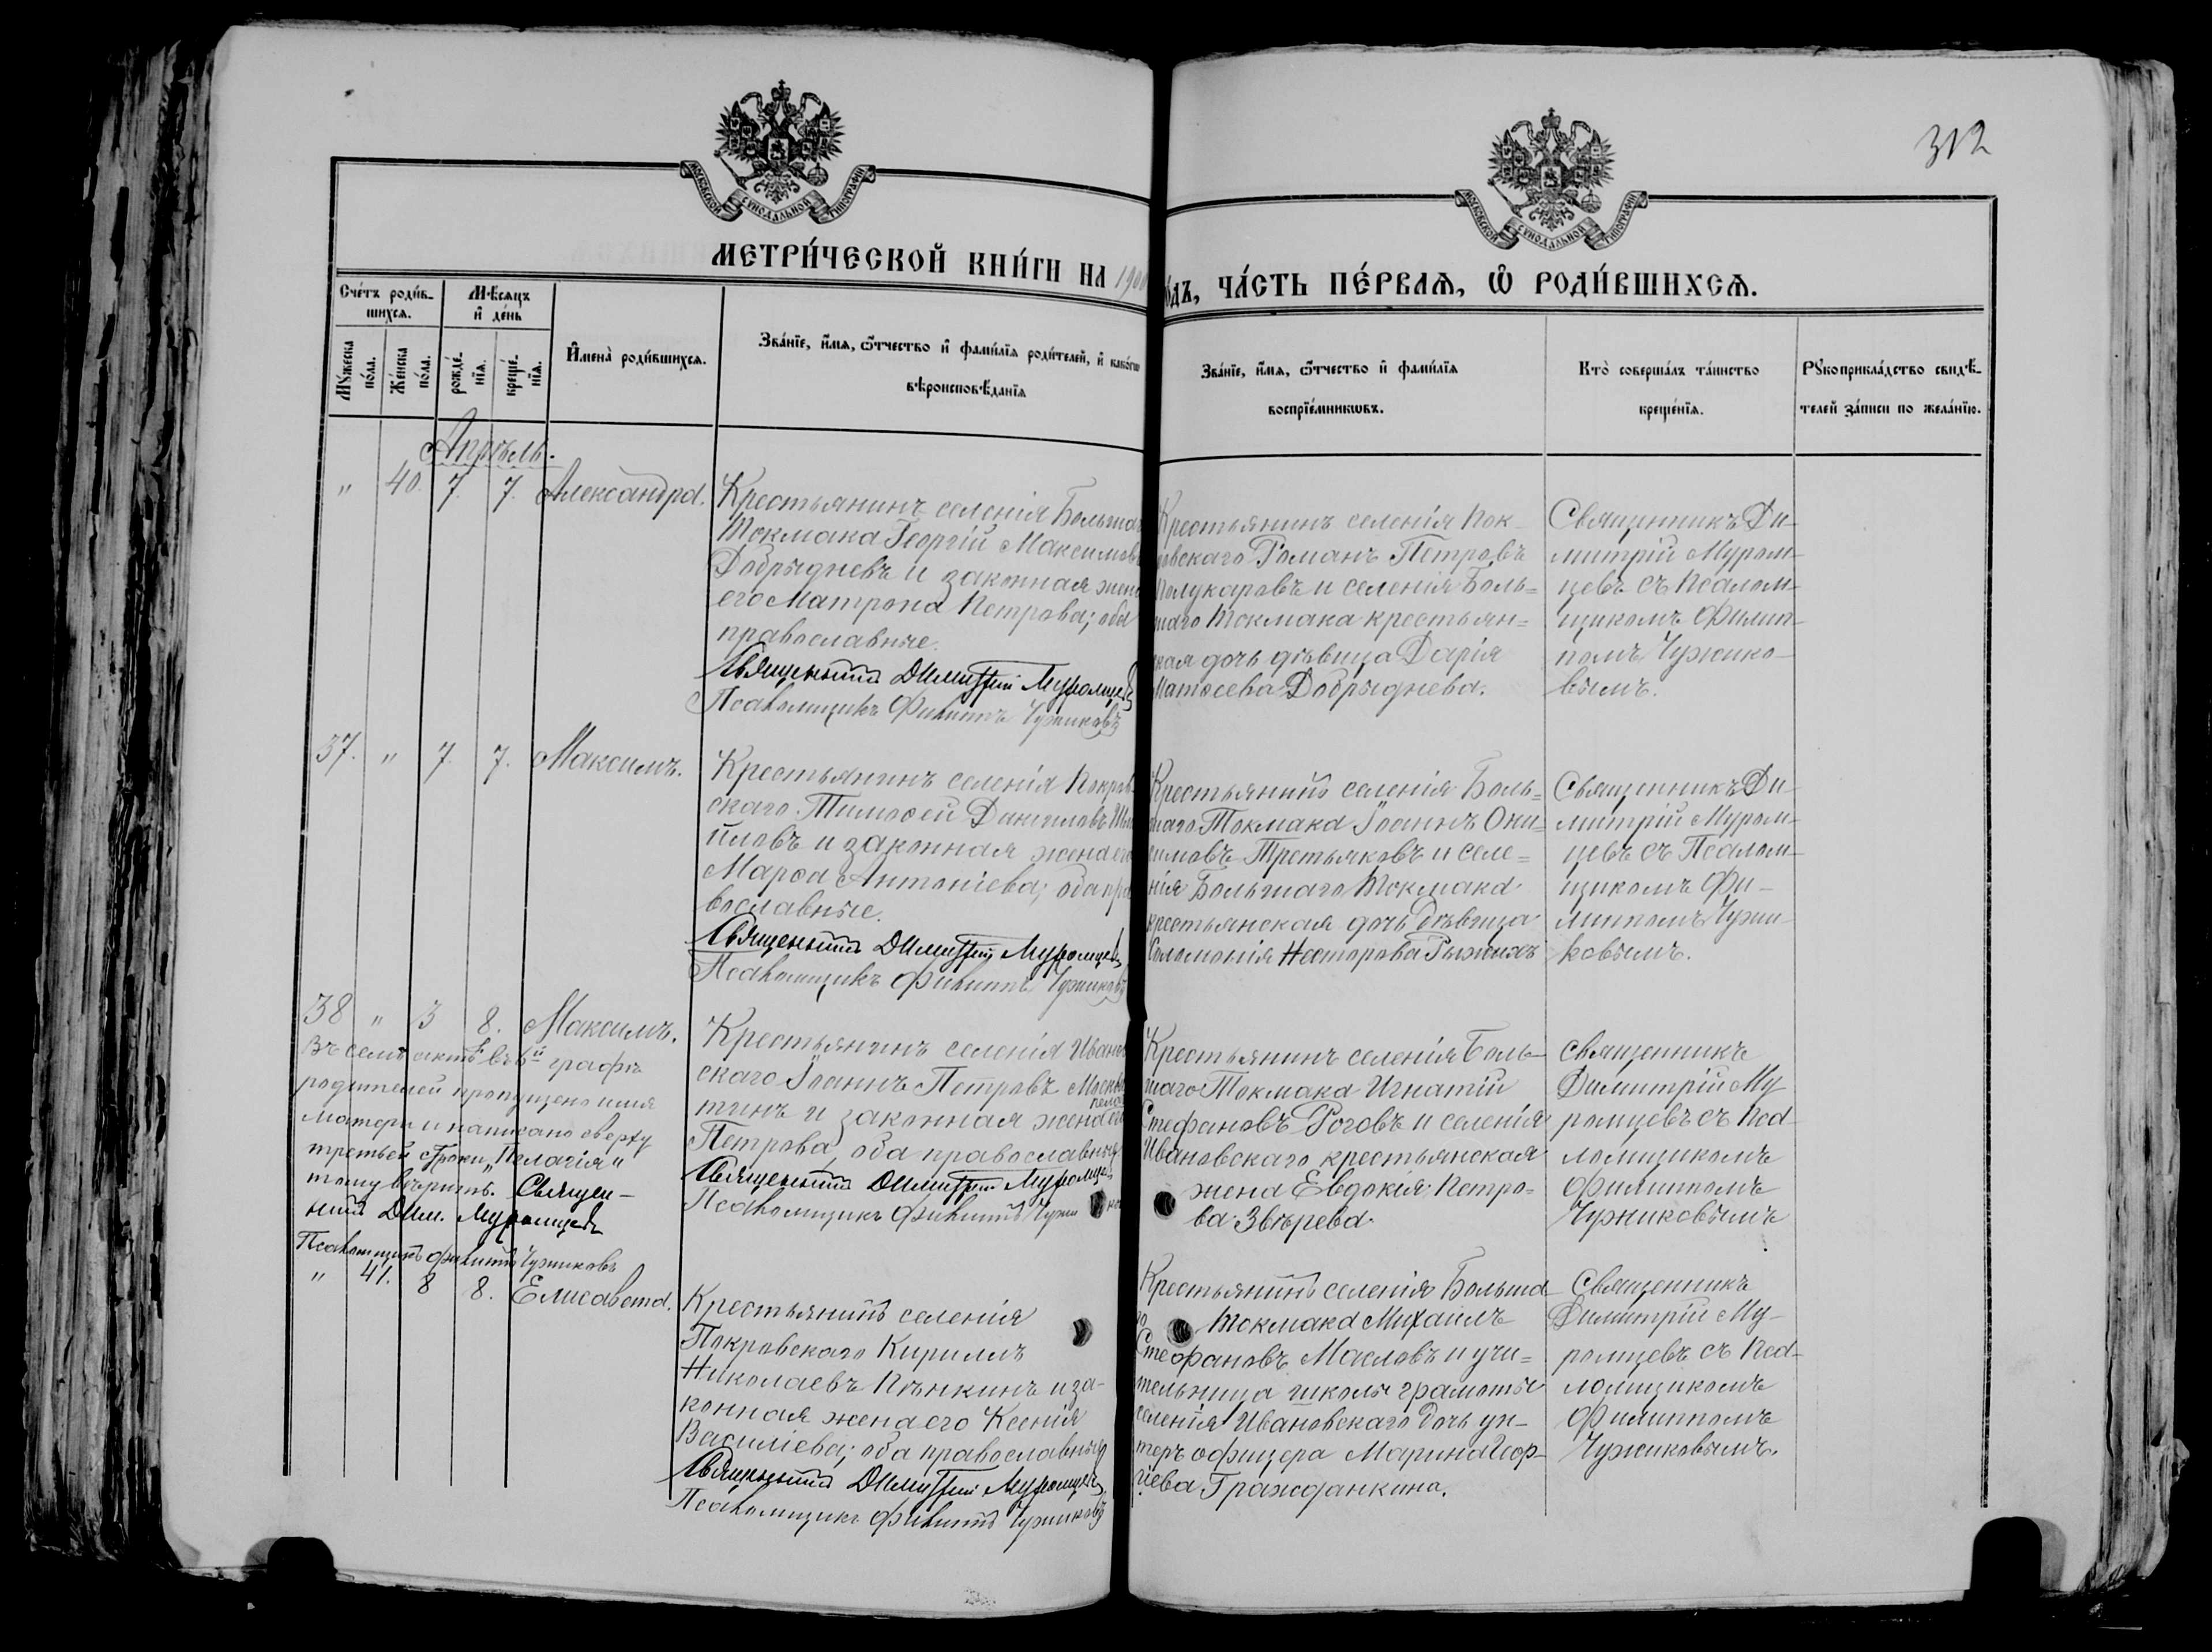 312
МОСКОВСКОЙ СѴНОДАЛЬНОЙ ТИПОГРАФІИ
МОСКОВСКОЙ СѴНОДАЛЬНОЙ ТИПОГРАФІИ
МЕТРИ́ЧЕСКОЙ КНИ́ГИ НА 1900
ЧА́СТЬ ПЕ́РВАЯ, Ѡ҆ РОДИ́ВШИХСЯ.
Сче́тъ роди́в-
шихся.
Мѣсяцъ
и҆ де́нь
Мꙋ́жеска
по́ла.
Же́нска
по́ла.
рожде́-
нїя.
креще́-
нїя.
И҆мена̀ роди́вшихся.
Зва́нїе, и҆́мя, ѻ҆́тчество и҆ фами́лїя роди́телей, и҆ како́гѡ
вѣроисповѣ́данїя
Зва́нїе, и҆́мя, ѻ҆́тчество и҆ фами́лїя
воспрїе́мникѡвъ.
Кто̀ соверша́лъ та́инство
креще́нїя.
Рꙋкоприкла́дство свидѣ́-
телей за́писи по жела́нїю.
Апрѣль.
" 40. 7. 7. Александра.
Крестьянинъ селенія Больша
Токмака Георгій Максимов
Добрыдневъ и законная жена
его Матрона Петрова; оба
православные.
Священникъ Димитрій Муромцевъ
Псаломщикъ Филиппъ Чужиковъ
Крестьянинъ селенія Пок-
ровскаго Романъ Петровъ
Полукаровъ и селенія Боль=
шаго Токмака крестьян=
ская дочь дѣвица Дарія
Матѳеева Добрыднева.
Священникъ Ди-
митрій Муром-
цевъ съ Псалом-
щикомъ Филип-
помъ Чужико-
вымъ.
37. " 7. 7. Максимъ.
Крестьянинъ селенія Покров
скаго Тимоѳей Даниловъ
иловъ и законная жена его
Марѳа Антоніева; оба пра
вославные.
Священникъ Димитрій Муромцевъ
Псаломщикъ Филиппъ Чужиковъ
Крестьянинъ селенія Боль=
шаго Токмака Іоаннъ Они=
симовъ Третьяковъ и селе=
нія Большаго Токмака
крестьянская дочь дѣвица
Соломонія Несторова Рыжихъ
Священникъ Ди-
митрій Муром-
цевъ съ Псалом-
щикомъ Фи-
липпомъ Чужи-
ковымъ.
38 " 3 8. Максимъ.
Въ семъ актѣ въ графѣ
родителей пропущено имя
матери и написано сверху
третьей строки „Пелагія"
тому вѣрить. Священ-
никъ Дим. Муромцевъ
Псаломщикъ Филиппъ Чужиковъ
Крестьянинъ селенія Иванов
скаго Іоаннъ Петровъ
тинъ и законная жена его
Петрова, оба православные
Священникъ Димитрій Муромцевъ
Псаломщикъ Филиппъ
Крестьянинъ селенія Боль-
шаго Токмака Игнатій
Стефановъ Роговъ и селенія
Ивановскаго крестьянская
жена Евдокія Петро=
ва Звѣрева.
Священникъ
Димитрій Му
ромцевъ съ Пса-
ломщикомъ
Филиппомъ
Чужиковымъ
" 41. 8 8. Елисавета.
Крестьянинъ селенія
Покровскаго Кириллъ
Николаевъ Пѣнкинъ и за-
конная жена его Ксенія
Василіева; оба православные
Священникъ Димитрій Муромцевъ
Псаломщикъ Филиппъ Чужиковъ
Крестьянинъ селенія Больша-
го Токмака Михаилъ
Стефановъ Масловъ и учи=
тельница школы грамоты
селенія Ивановскаго дочь ун-
теръ офицера Марина Геор-
гіева Гражданкина.
Священникъ
Димитрій Му-
ромцевъ съ Пса-
ломщикомъ
Филиппомъ
Чужиковымъ.